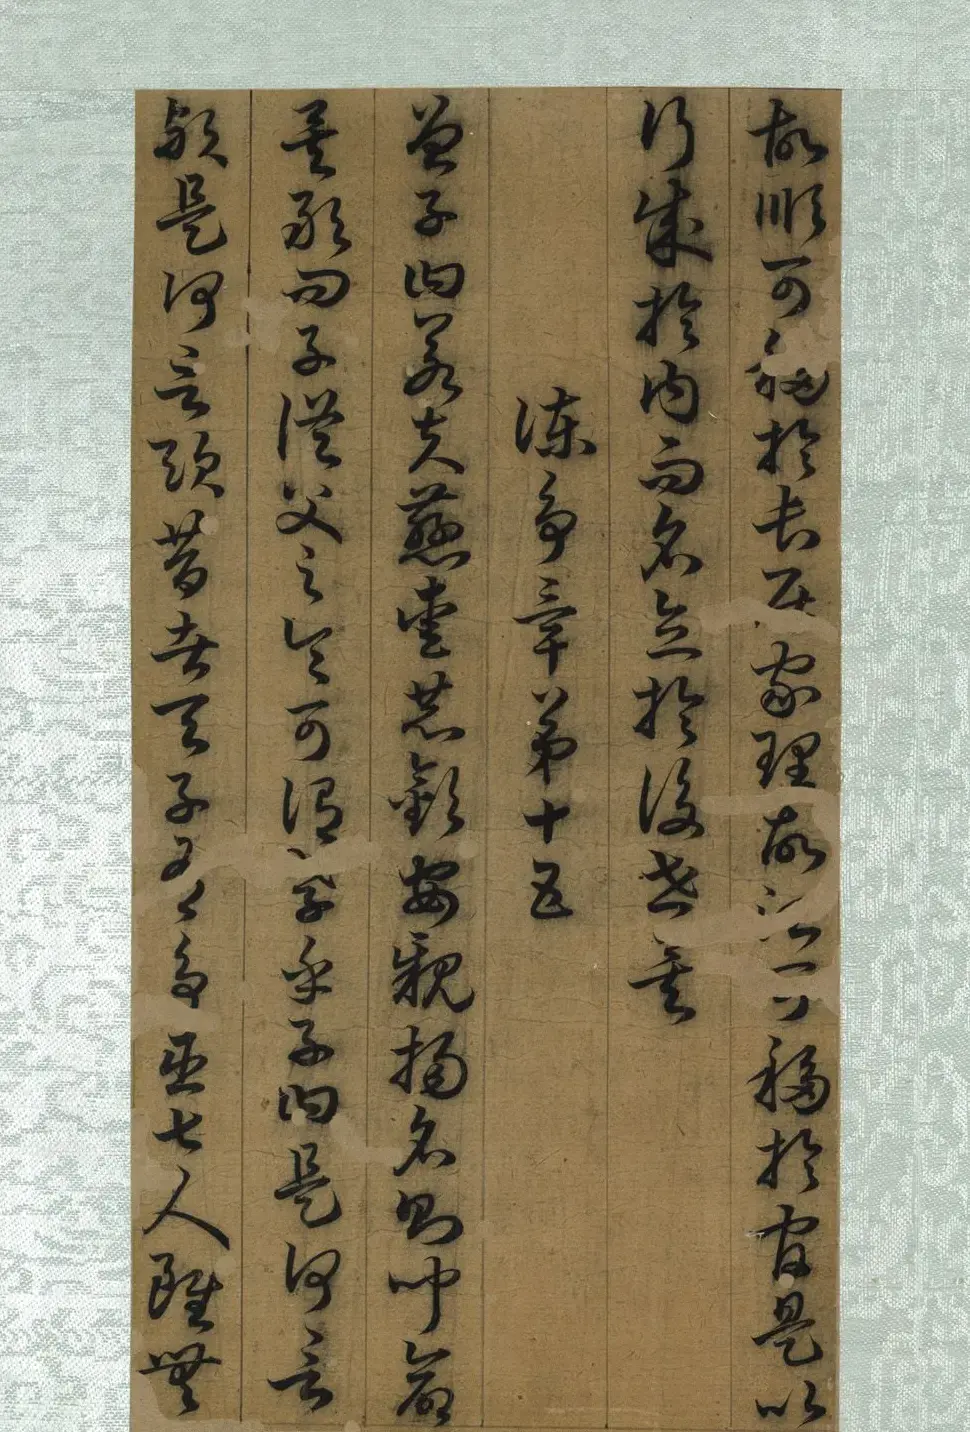 故順可移於長居家理故治可移於官是以
行成於內而名立於後世矣
諫爭章第十五
曾子曰若夫慈愛恭敬安親揚名則聞命
矣敢問子從父之令可謂孝乎子曰是何言
歟是何言歟昔者天子有爭臣七人雖無